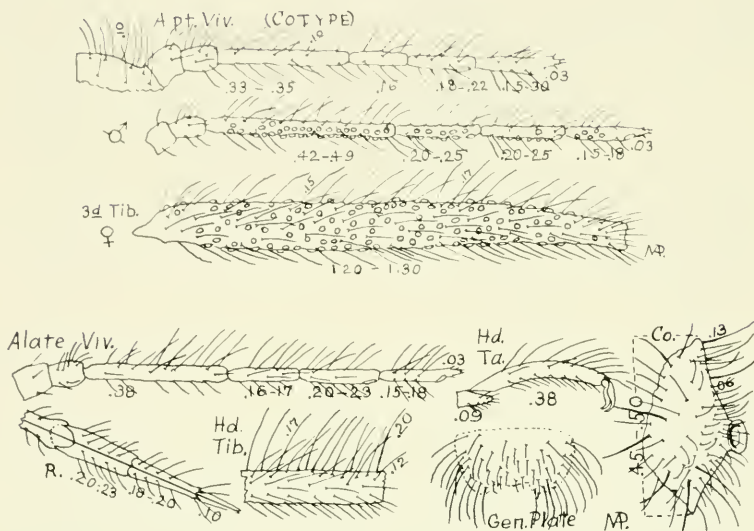 Apt. Viv. (COTYPE)
.10
.33-.35 .16 .18-.22 .15-.30 .03
♂
.42-49 .20-25 .20-25 .15-18 .03
3d Tib.
♀
.15 .17
1.20-1.30
MP.
Alate Viv.
.38 .16-17 .20-23 .15-18 .03
R. .20-23 .18-.20 .10
Hd.
Tib.
.17 .20 .12
Hd.
Ta.
.09 .38
Gen. Plate
Co.
.13
.06
.45-.50
MP.